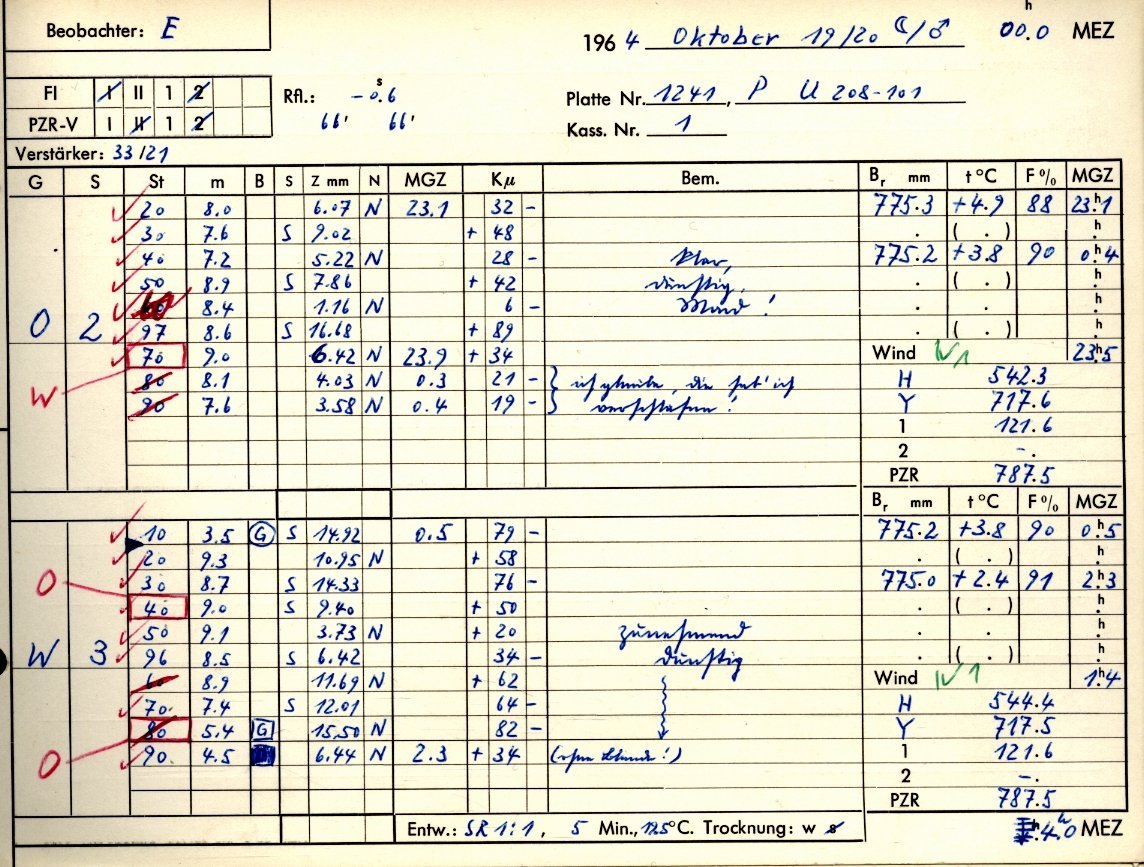 Beobachter: E
196 4 Oktober 19/20 ☾/♂ 00.0 h MEZ
FI I II 1 2
PZR-V I II 1 2
Rfl.: -0.6 s
66' 66'
Platte Nr. 1241, P U 208-101
Kass. Nr. 1
Verstärker: 33/21
G S St m B S Z mm N MGZ Kμ Bem. Br mm t °C F % MGZ
20 8.0 6.07 N 23.1 32 - 775.3 +4.9 88 23h1
30 7.6 S 9.02 + 48 . ( . ) h.
40 7.2 5.22 N 28 - klar, 775.2 +3.8 90 0h4
50 8.9 S 7.86 + 42 dunstig, . ( . ) h.
60 8.4 1.16 N 6 - Mond! . . h.
O 2 97 8.6 S 16.68 + 89 . ( . ) h.
70 9.0 6.42 N 23.9 + 34 Wind IV 1 23h5
W 80 8.1 4.03 N 0.3 21 - } ich glaube, die hab' ich H 542.3
90 7.6 3.58 N 0.4 19 - } verschlafen! Y 717.6
1 121.6
2 -.
PZR 787.5
Br mm t °C F % MGZ
10 3.5 G S 14.92 0.5 79 - 775.2 +3.8 90 0h5
20 9.3 10.95 N + 58 . ( . ) h.
O 30 8.7 S 14.33 76 - 775.0 +2.4 91 2h3
40 9.0 S 9.40 + 50 . ( . ) h.
50 9.1 3.73 N + 20 zunehmend . . h.
W 3 96 8.5 S 6.42 34 - dunstig . ( . ) h.
60 8.9 11.69 N + 62 Wind IV 1 1h4
70. 7.4 S 12.01 64 - H 544.4
80 5.4 G 15.50 N 82 - Y 717.5
O 90. 4.5 6.44 N 2.3 + 34 (ohne Blende!) 1 121.6
2 -.
PZR 787.5
Entw.: SR 1:1, 5 Min., 18.5 °C. Trocknung: w s
4.0 h MEZ